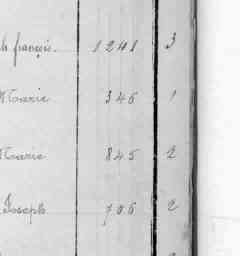 h françois. 1241 3
Marie 346 1
Marie 845 2
Joseph 706 2